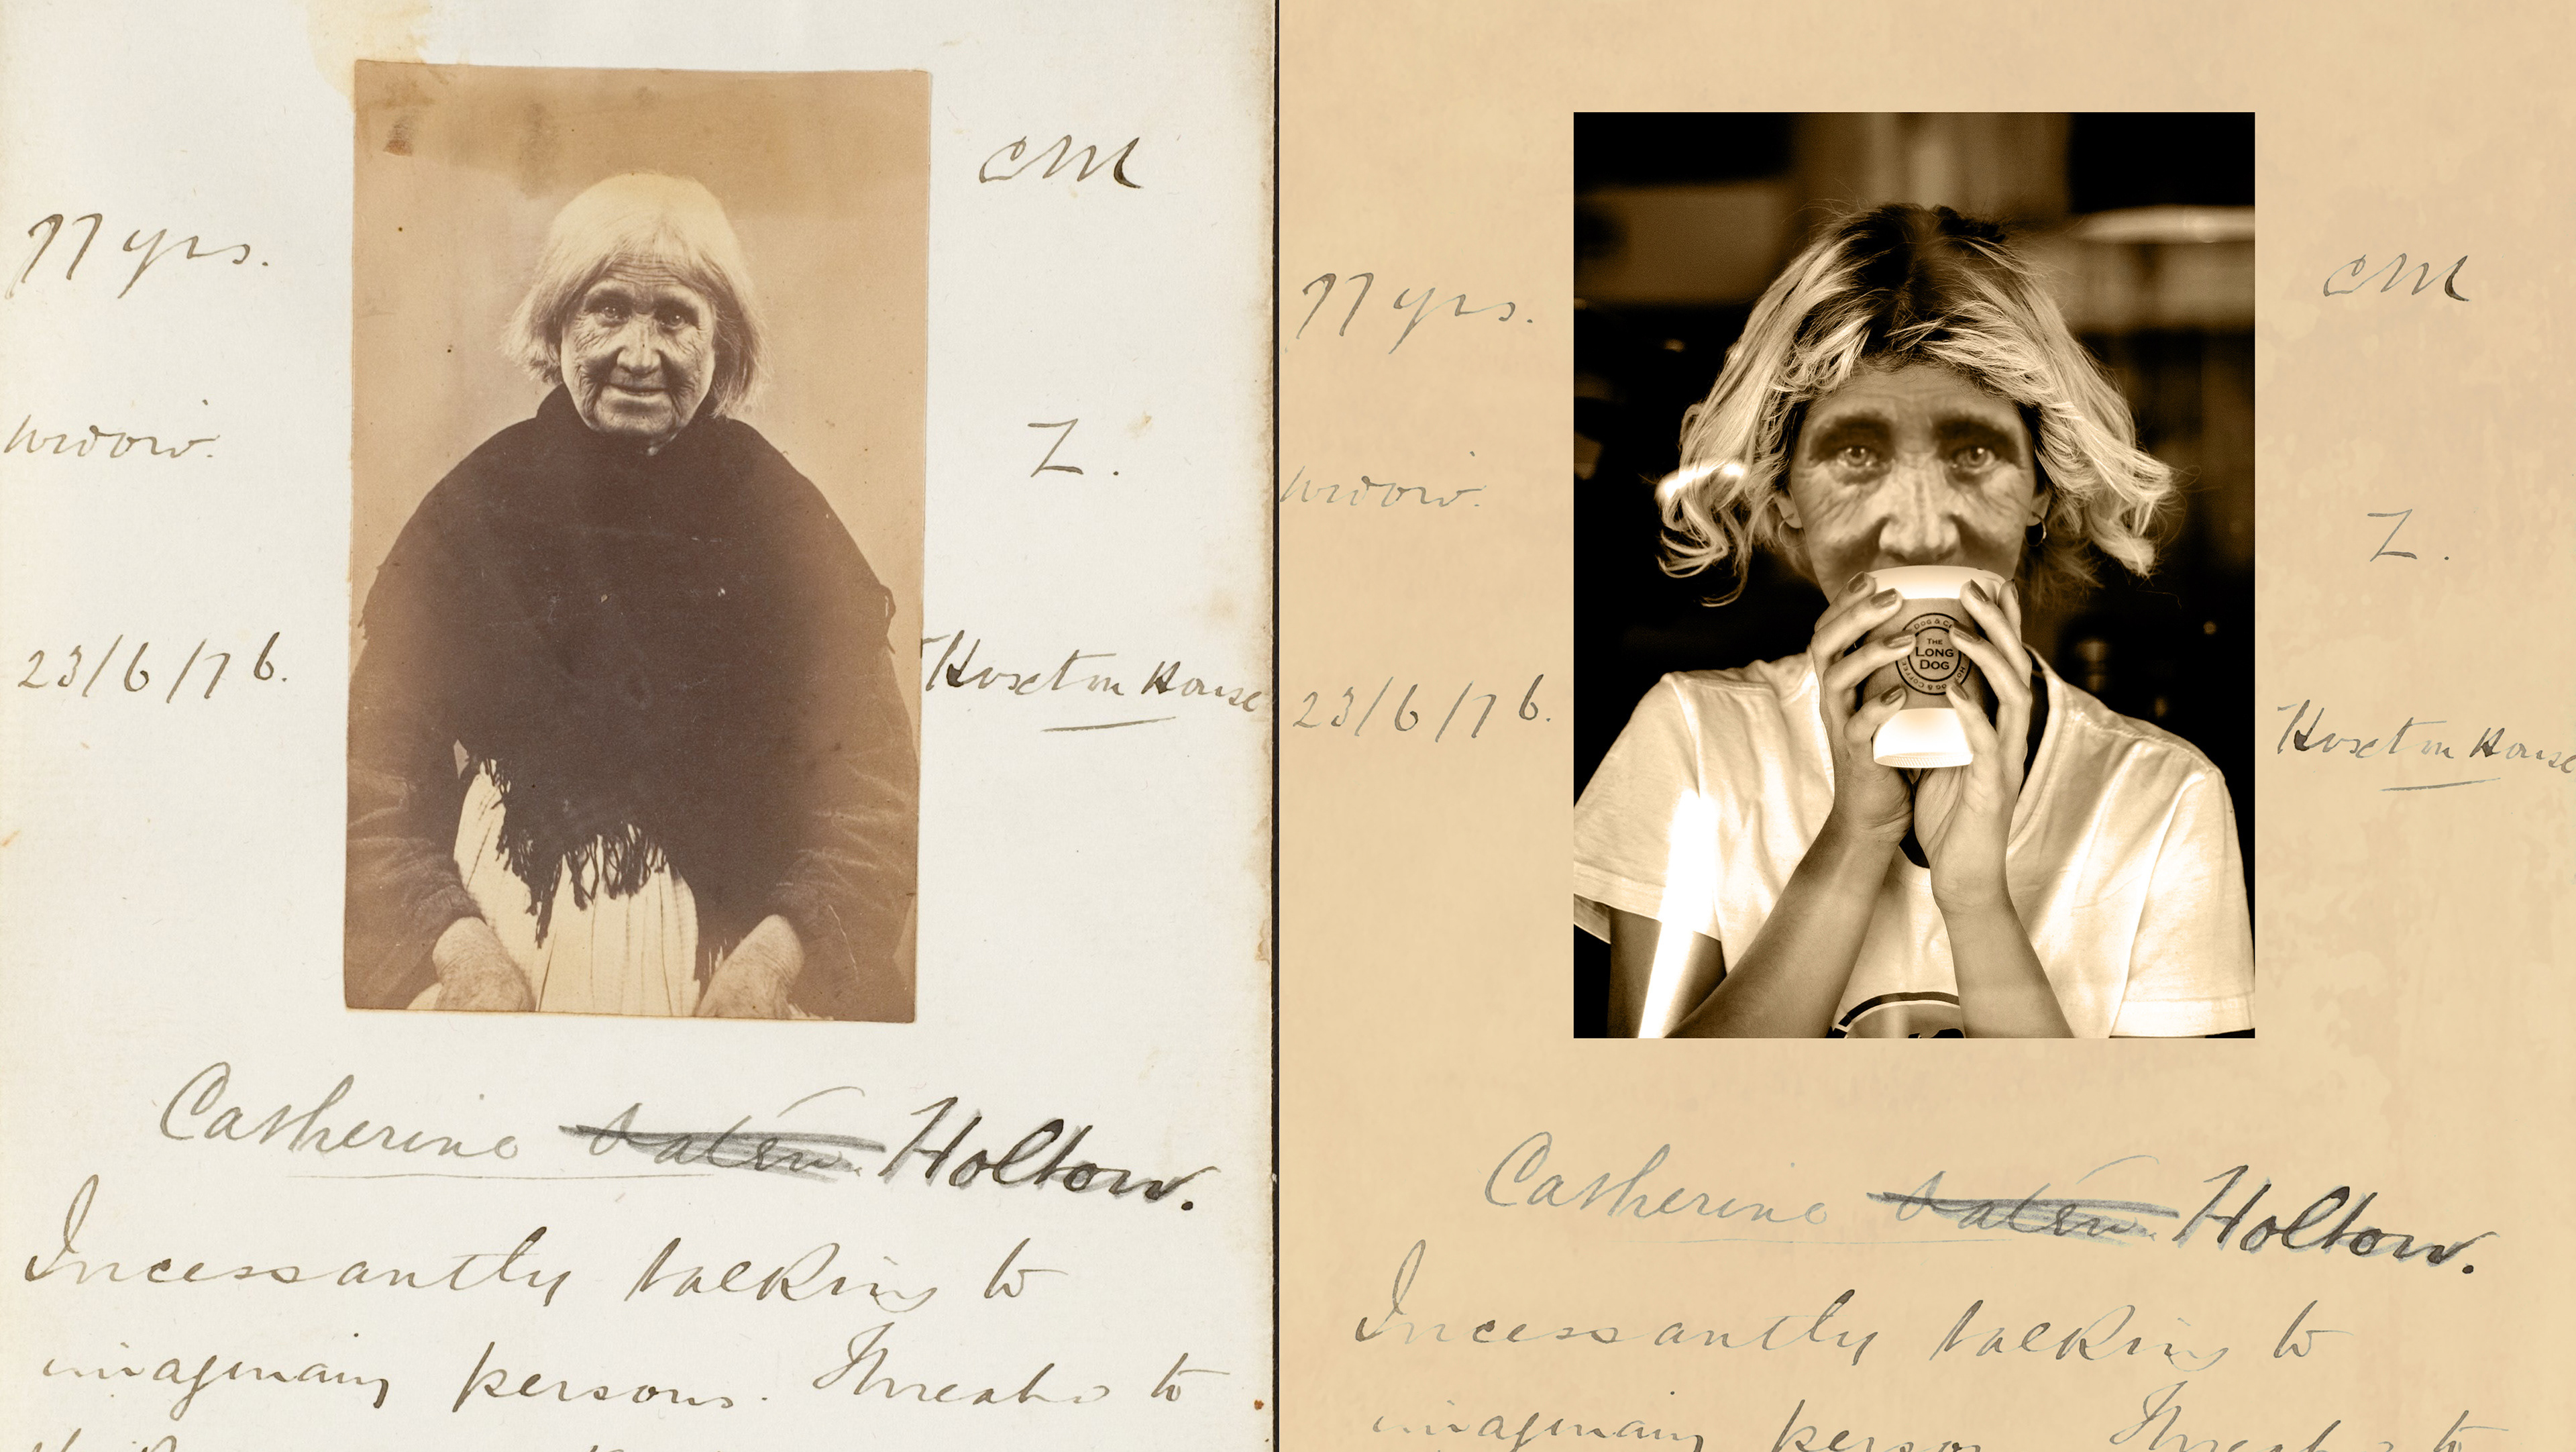 CM
77 yrs.
Widow.
Z.
23/6/76.
Hoxton House
Catherine Holton.
Incessantly talking to
imaginary persons. Threatens to
CM
77 yrs.
Widow.
Z.
23/6/76.
Hoxton House
THE
LONG
DOG
Catherine Holton.
Incessantly talking to
imaginary persons. Threatens to